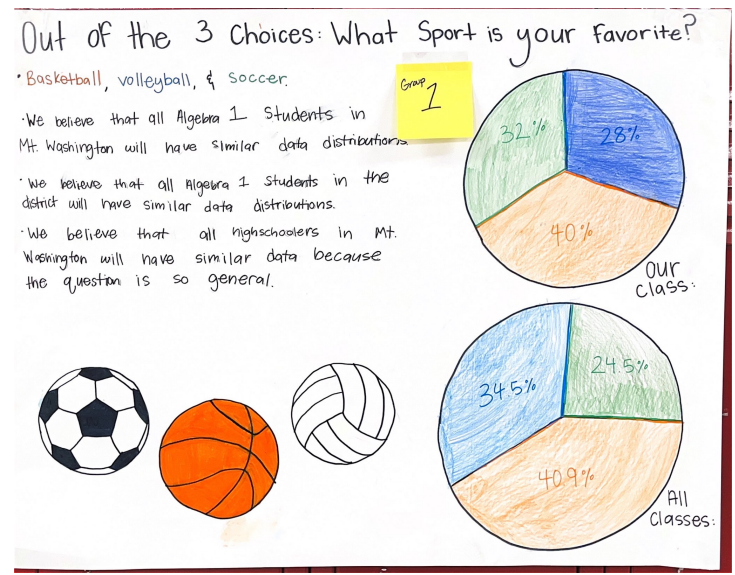 Out of the 3 Choices: What Sport is your Favorite?
• Basketball, volleyball, & Soccer.
Group
1
• We believe that all Algebra 1 Students in
Mt. Washington will have similar data distributions.
• We believe that all Algebra 1 Students in the
district will have similar data distributions.
• We believe that all highschoolers in Mt.
Washington will have similar data because
the question is so general.
32%
28%
40%
Our
Class:
34.5%
24.5%
40.9%
All
Classes: